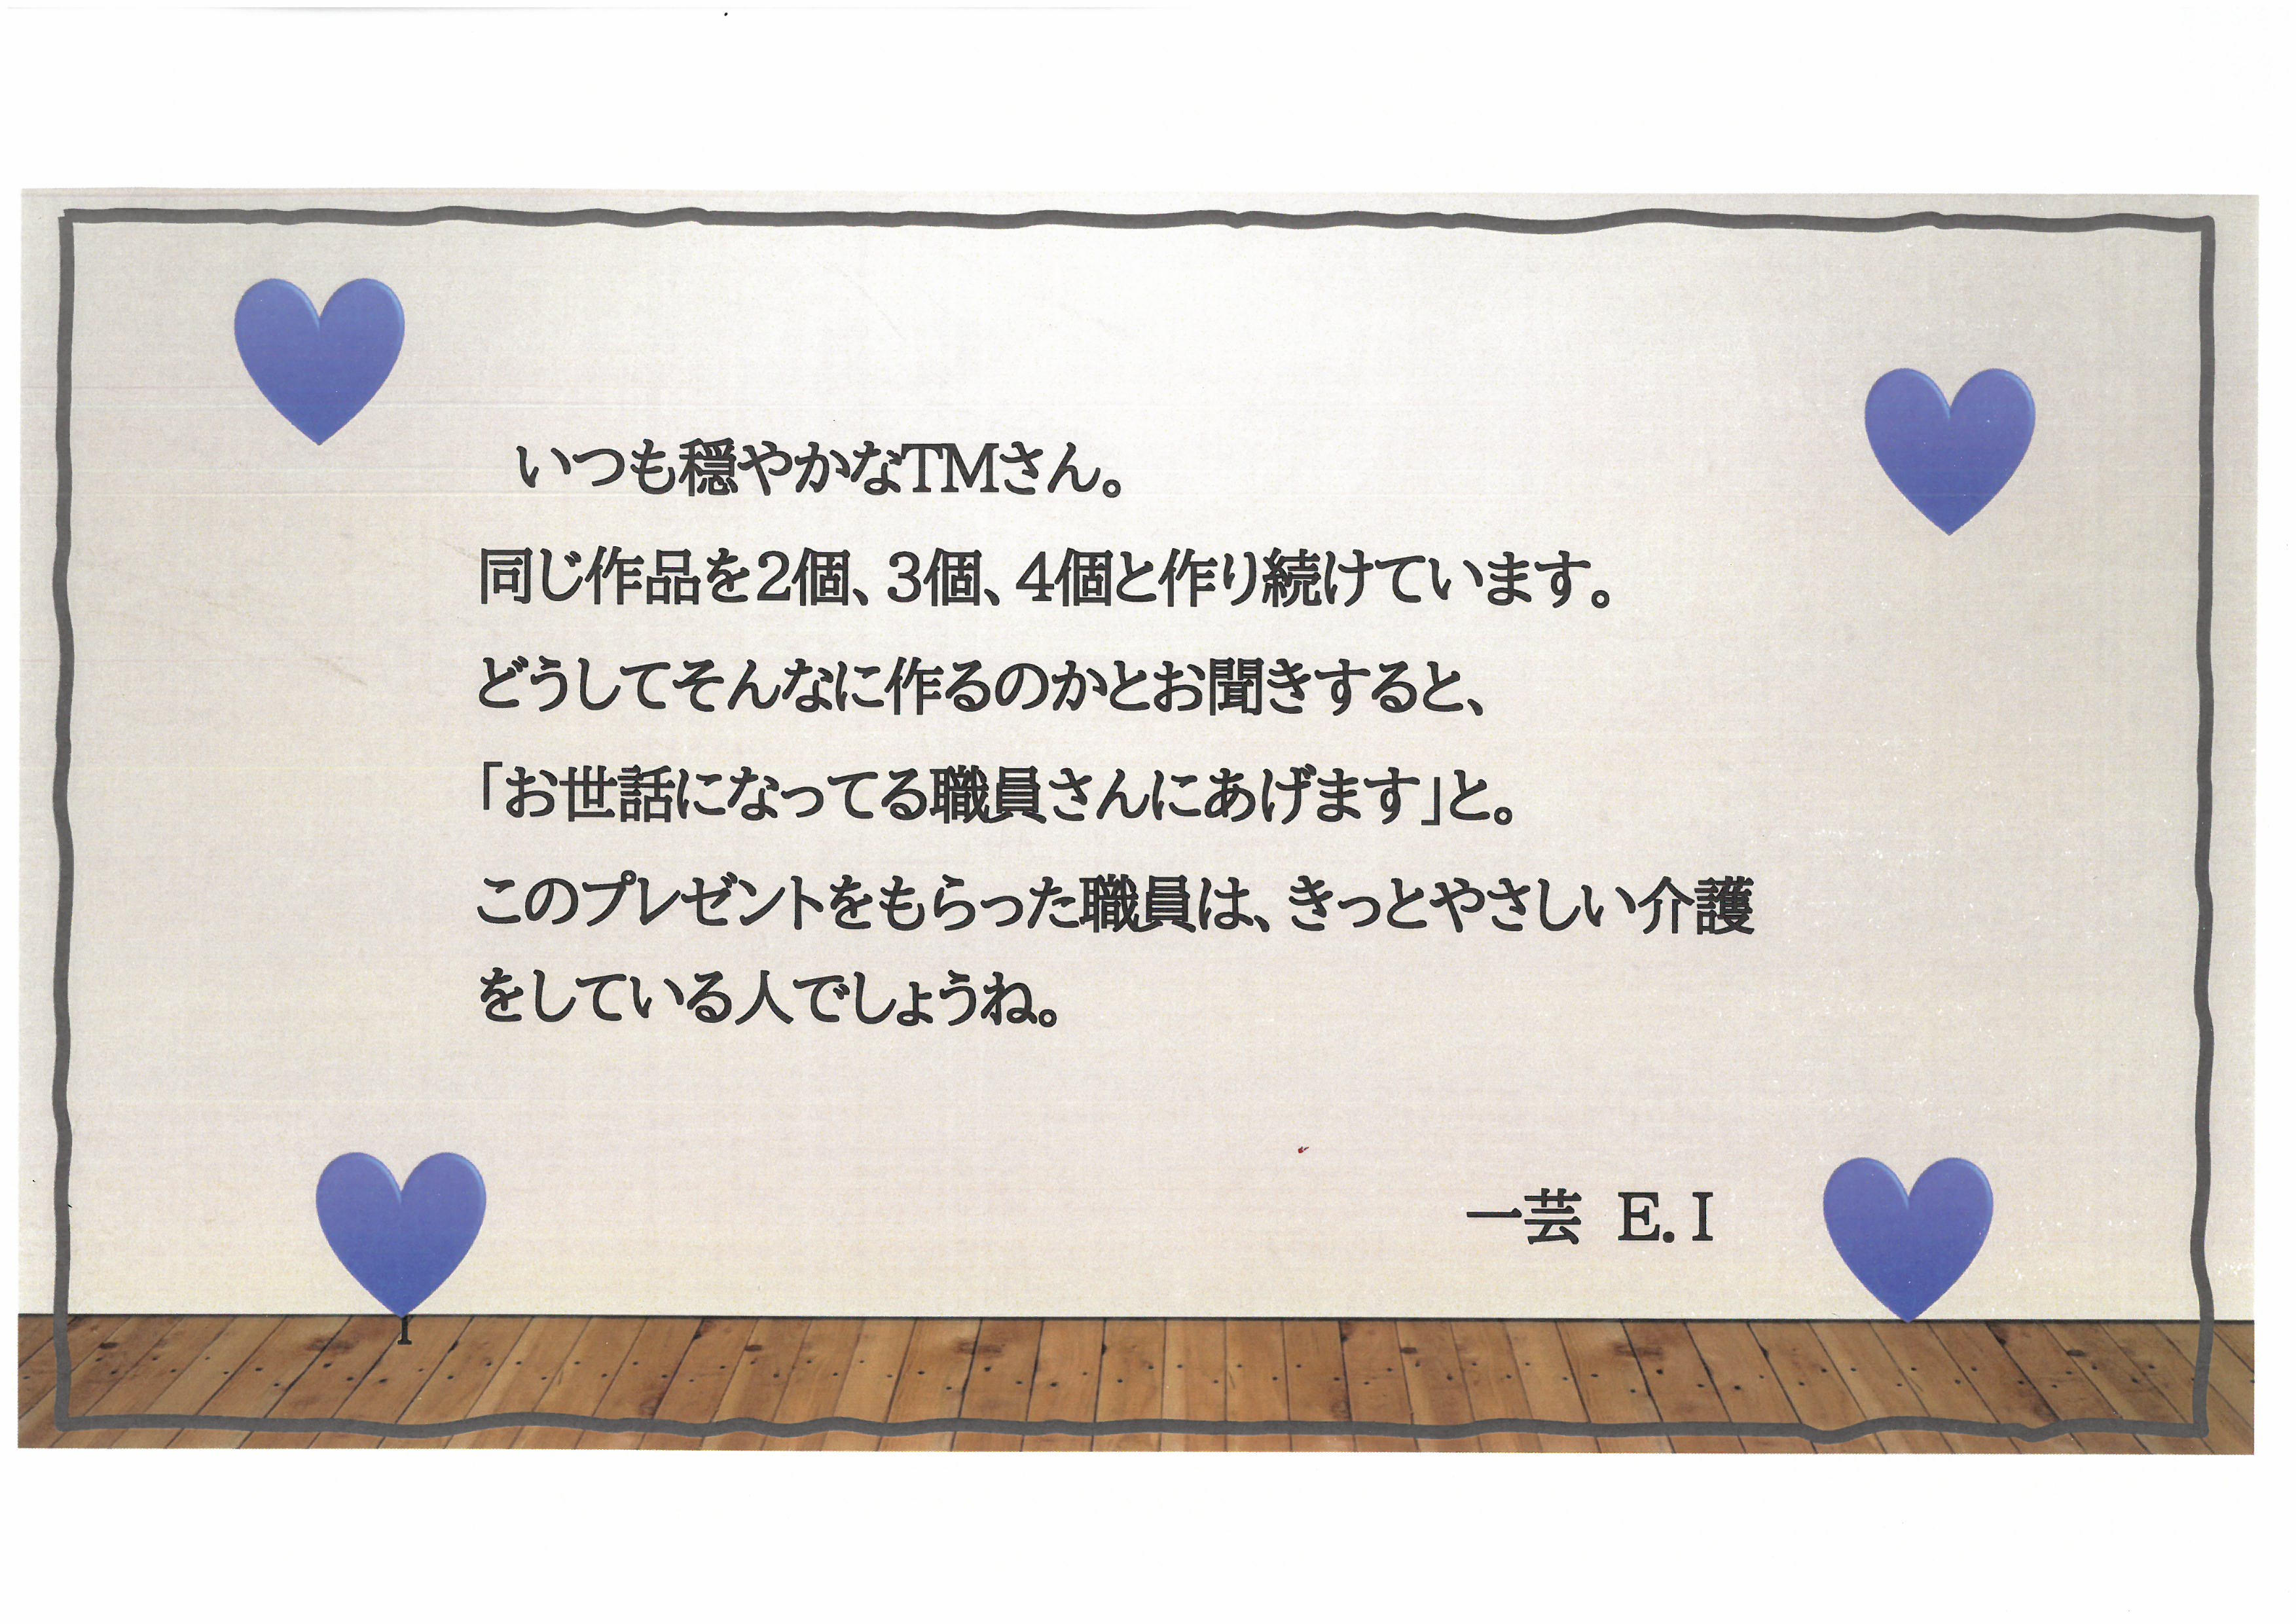 いつも穏やかなTMさん。
同じ作品を2個、3個、4個と作り続けています。
どうしてそんなに作るのかとお聞きすると、
「お世話になってる職員さんにあげます」と。
このプレゼントをもらった職員は、きっとやさしい介護
をしている人でしょうね。
一芸 E.I
I